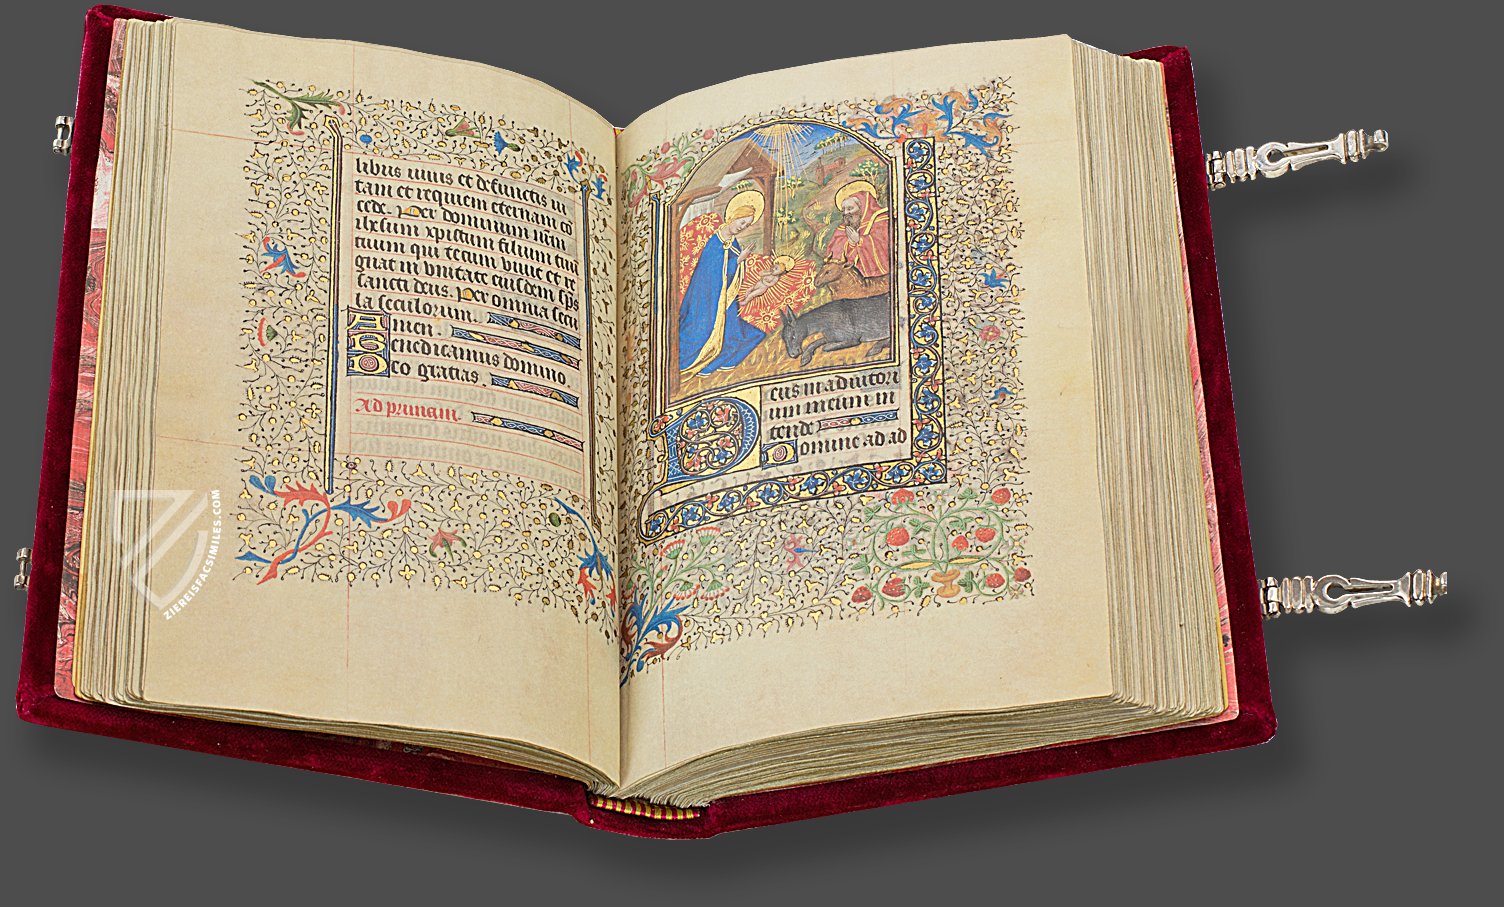 libus uiuis et defunctis ui
tam et requiem eternam co
cede. Per dominum nrm
ihesum xpistum filium tuu
tuum qui tecum viuit et re
gnat in vnitate eiusdem sps
sancti deus. Per omnia secu
la seculorum.
Amen.
Benedicamus domino.
Deo gratias.
Ad primam.
Deus in adiutori
um meum in
tende
Domine ad ad
ZIEREISFACSIMILES.COM